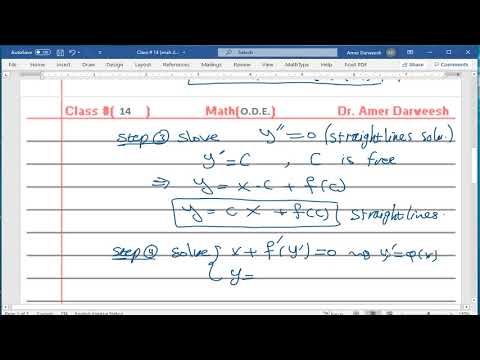 AutoSave On
Class # 14 (math 2...
Search
Amer Darweesh
File Home Insert Draw Design Layout References Mailings Review View Help MathType Grammarly Share Comments
Class #( 14 )
Math(O.D.E.)
Dr. Amer Darweesh
step ③ slove y''=0 (straight lines solu.)
y'=C , C is free
⇒ y= x·c + f(c)
y = c x + f(c) straight lines.
step ④ solve { x + f'(y')=0 ⇝ y'=φ(x)
{ y=